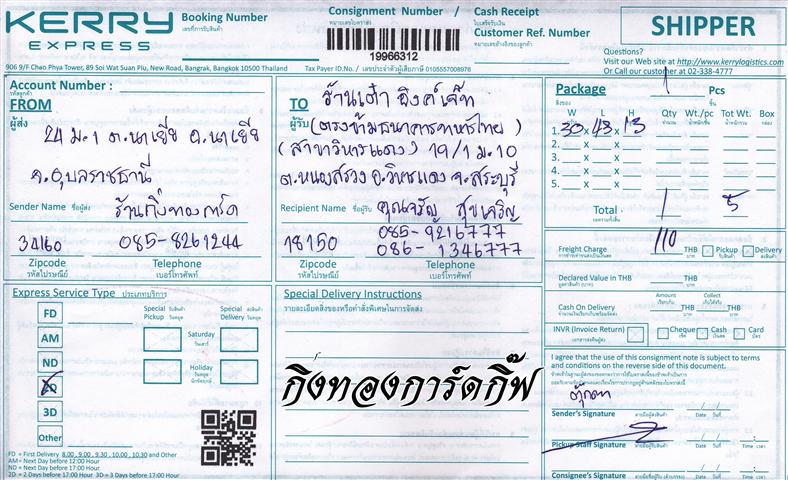 KERRY
EXPRESS
Booking Number
เลขที่การรับสินค้า
Consignment Number /
หมายเลขใบตราส่ง
19966312
Cash Receipt
ใบเสร็จรับเงิน
Customer Ref. Number
หมายเลขอ้างอิงของลูกค้า
SHIPPER
Questions?
Visit our Web site at http://www.kerrylogistics.com
Or Call our customer at 02-338-4777
906 9/F Chao Phya Tower, 89 Soi Wat Suan Plu, New Road, Bangrak, Bangkok 10500 Thailand
Tax Payer ID.No. / เลขประจำตัวผู้เสียภาษี 0105557008976
Account Number :
รหัสลูกค้า
FROM
ผู้ส่ง
24 ม.1 ต.นาเยีย อ.นาเยีย
จ.อุบลราชธานี
Sender Name ชื่อผู้ส่ง ร้านกิ่งทองการ์ด
34160 085-8261244
Zipcode Telephone
รหัสไปรษณีย์ เบอร์โทรศัพท์
TO ร้านเต๋า อิงค์เจ็ท
ผู้รับ (ตรงข้ามธนาคารทหารไทย)
(สาขาวิหารแดง) 19/1 ม.10
ต.หนองสรวง อ.วิหารแดง จ.สระบุรี
Recipient Name ชื่อผู้รับ คุณจรัญ สุขเจริญ
085-9216777
18150 086-1346777
Zipcode Telephone
รหัสไปรษณีย์ เบอร์โทรศัพท์
Package 1 Pcs
สิ่งของ ชิ้น
W L H Qty Wt./pc Tot Wt. Box
1. 30 x 43 x 13
2. x x
3. x x
4. x x
5. x x
Total 1 5
Freight Charge 110 THB Pickup Delivery
Declared Value in THB THB
Amount Collect
Cash On Delivery THB THB
INVR (Invoice Return) Cheque Cash Card
Express Service Type ประเภทบริการ
Special Pickup
Special Delivery
FD
AM
ND
2D
3D
Other
Saturday
วันเสาร์
Holiday
วันหยุด
FD = First Delivery 8.00, 9.00, 9.30, 10.00, 10.30 and Other
AM = Next Day before 12:00 Hour
ND = Next Day before 17:00 Hour
2D = 2 Days before 17:00 Hour 3D = 3 Days before 17:00 Hour
Special Delivery Instructions
รายละเอียดสิ่งของหรือคำสั่งพิเศษในการจัดส่ง
กิ่งทองการ์ดกิ๊ฟ
I agree that the use of this consignment note is subject to terms
and conditions on the reverse side of this document.
ตุ๊กตา
Sender's Signature ลายมือผู้ส่งสินค้า Date วันที่
Pickup Staff Signature Date วันที่ Time เวลา
Consignee's Signature Date วันที่ Time เวลา